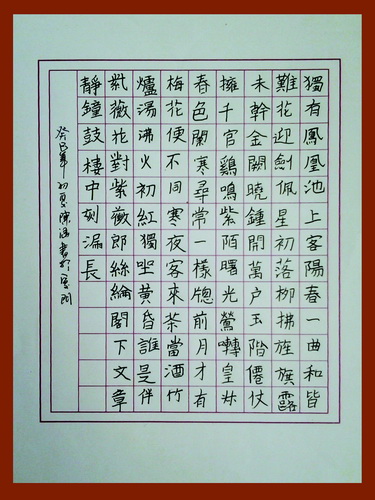 獨有鳳凰池上客陽春一曲和皆
難花迎劍佩星初落柳拂旌旗露
未幹金闕曉鍾開萬户玉階僊仗
擁千官鷄鳴紫陌曙光鶯囀皇州
春色闌寒尋常一樣牕前月才有
梅花便不同寒夜客來茶當酒竹
爐湯沸火初紅獨坐黄昏誰是伴
紫薇花對紫薇郎絲綸閣下文章
靜鐘鼓樓中刻漏長
癸巳年初夏陳書於